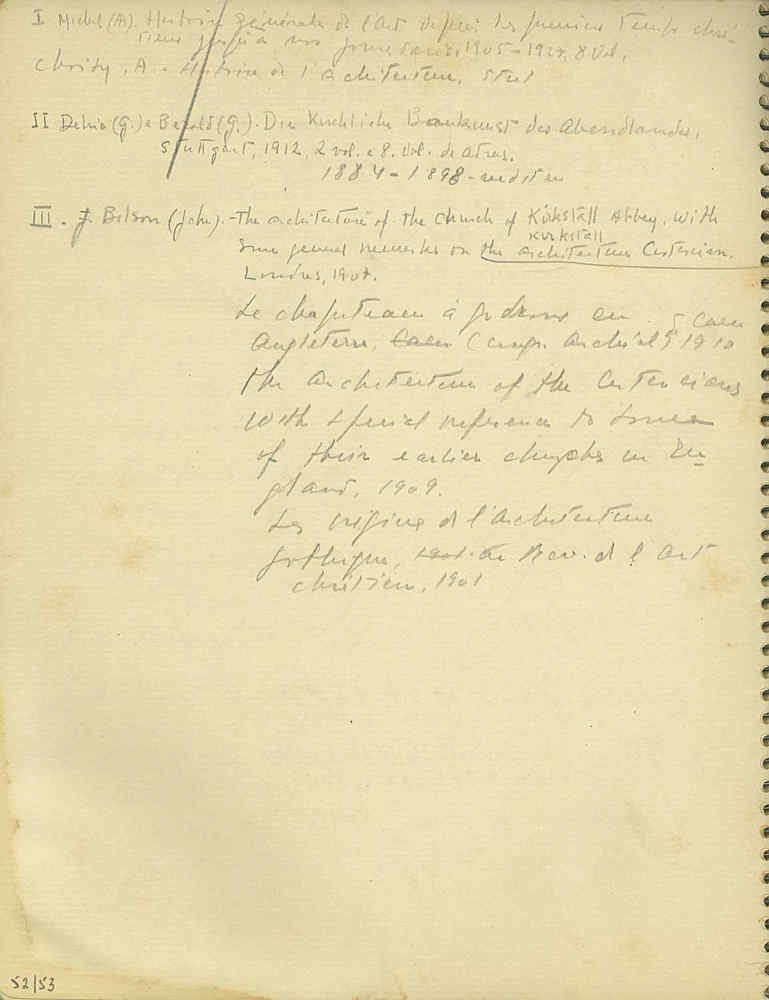 I Michel (A). Histoire générale de l'art depuis les premiers temps chré-
tiens jusqu'à nos jours Paris, 1905-1929, 8 vol.
Choisy, A. - Histoire de l'architecture,
II Dehio (G.) e Bezold (G.). Die Kirchliche Baukunst des Abendlandes,
Stuttgart, 1912, 2 vol. e 8. vol. de atlas.
1884-1898-
III. J. Bilson (John). - The architecture of the church of Kirkstall Abbey, with
Kirkstall
some general remarks on the architecture Cistercian.
Londres, 1907.
Le chapiteau à godrons en Caen
Angleterre, Caen (congr. archéol) 1910
The architecture of the Cistercians
with special reference to some
of their earlier churches in En
gland, 1909.
Les origines de l'architecture
gothique, 1901 Rev. de l'art
chrétien, 1901
52/53